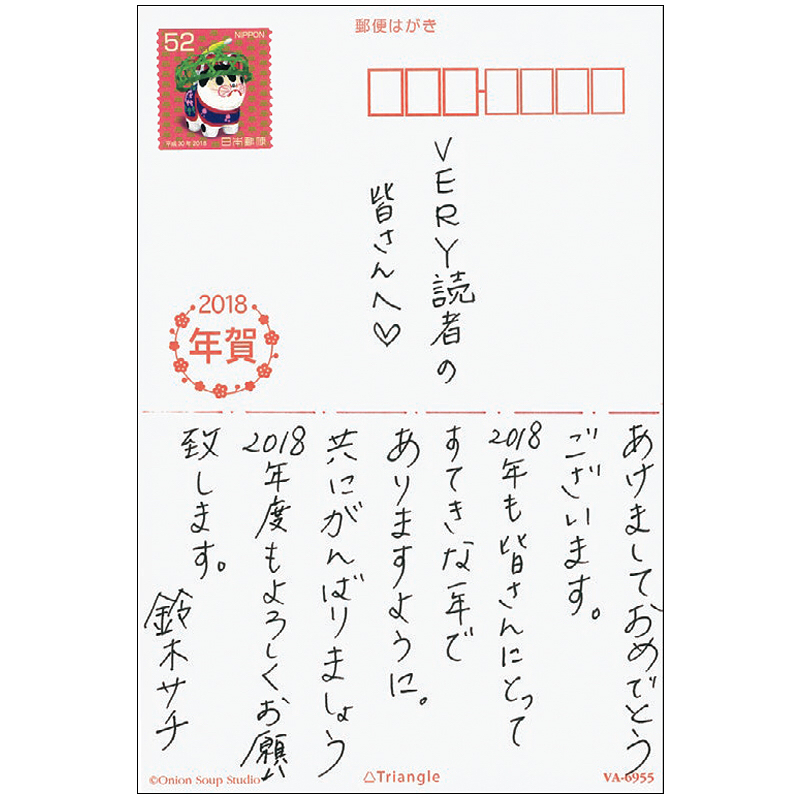 郵便はがき
52
NIPPON
平成30年 2018
日本郵便
VERY読者の
皆さんへ♡
2018
年賀
あけましておめでとう
ございます。
2018年も皆さんにとって
すてきな一年で
ありますように。
共にがんばりましょう
2018年度もよろしくお願い
致します。
鈴木サチ
©Onion Soup Studio
△Triangle
VA-6955